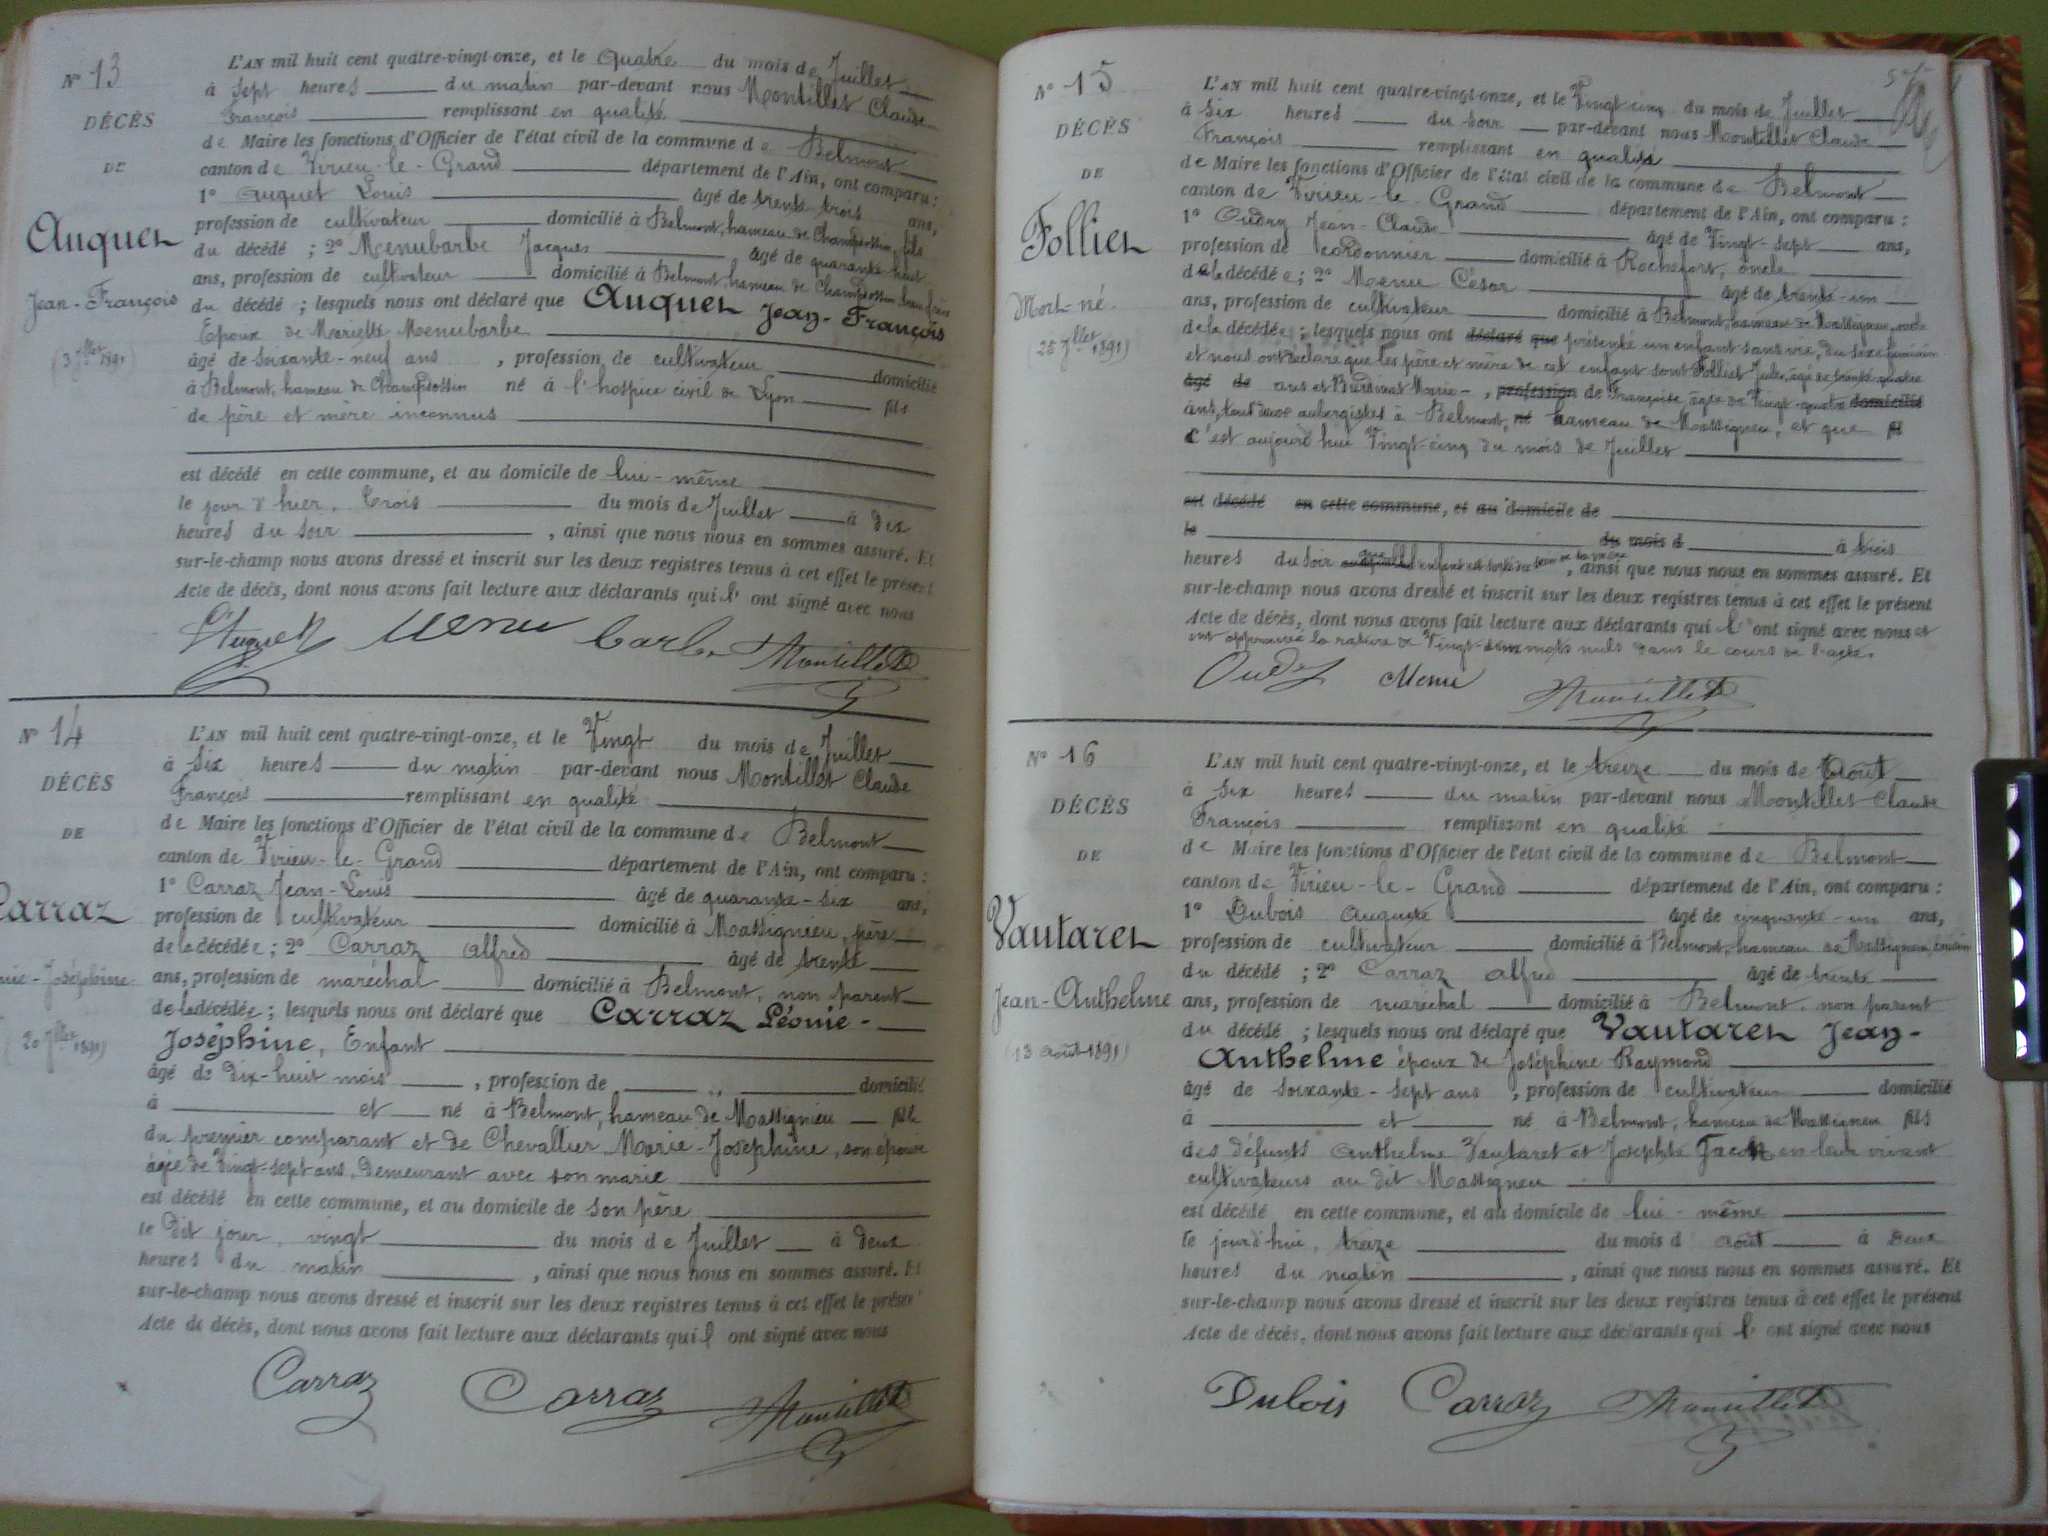 N° 13
DÉCÈS
DE
Auquet
Jean-François
(3 Jllet 1891)
L'AN mil huit cent quatre-vingt-onze, et le quatre du mois de Juillet
à sept heures du matin par-devant nous Montillet Claude
François remplissant en qualité
de Maire les fonctions d'Officier de l'état civil de la commune de Belmont
canton de Virieu-le-Grand département de l'Ain, ont comparu :
1° Auquet Louis âgé de trente trois ans,
profession de cultivateur domicilié à Belmont, hameau de Champdossin, fils
du décédé ; 2° Menubarbe Jacques âgé de quarante huit
ans, profession de cultivateur domicilié à Belmont, hameau de Champdossin, beau frère
du décédé ; lesquels nous ont déclaré que Auquet Jean-François
Epoux de Mariette Menubarbe
âgé de soixante-neuf ans , profession de cultivateur domicilié
à Belmont, hameau de Champdossin né à l'hospice civil de Lyon fils
de père et mère inconnus
est décédé en cette commune, et au domicile de lui-même
le jour d'hier, trois du mois de Juillet à dix
heures du soir , ainsi que nous nous en sommes assuré. Et
sur-le-champ nous avons dressé et inscrit sur les deux registres tenus à cet effet le présent
Acte de décès, dont nous avons fait lecture aux déclarants qui l' ont signé avec nous
Auquet Menu barbe Montillet
N° 14
DÉCÈS
DE
Carraz
nie-Joséphine
(20 Jllet 1891)
L'AN mil huit cent quatre-vingt-onze, et le Vingt du mois de Juillet
à six heures du matin par-devant nous Montillet Claude
François remplissant en qualité
de Maire les fonctions d'Officier de l'état civil de la commune de Belmont
canton de Virieu-le-Grand département de l'Ain, ont comparu :
1° Carraz Jean-Louis âgé de quarante-six ans,
profession de cultivateur domicilié à Massignieu, père
de la décédée ; 2° Carraz Alfred âgé de trente
ans, profession de maréchal domicilié à Belmont, non parent
de la décédée ; lesquels nous ont déclaré que Carraz Léonie-
Joséphine, Enfant
âgé de dix-huit mois , profession de " domicilié
à et né à Belmont, hameau de Massignieu fille
du premier comparant et de Chevallier Marie-Joséphine, son épouse
âgée de Vingt-sept ans, demeurant avec son marie
est décédé en cette commune, et au domicile de son père
le dit jour, vingt du mois de Juillet à deux
heures du matin , ainsi que nous nous en sommes assuré. Et
sur-le-champ nous avons dressé et inscrit sur les deux registres tenus à cet effet le présent
Acte de décès, dont nous avons fait lecture aux déclarants qui l' ont signé avec nous
Carraz Carraz Montillet
N° 15
DÉCÈS
DE
Folliet
Mort-né
(25 Jllet 1891)
L'AN mil huit cent quatre-vingt-onze, et le Vingt-cinq du mois de Juillet
à six heures du soir par-devant nous Montillet Claude
François remplissant en qualité
de Maire les fonctions d'Officier de l'état civil de la commune de Belmont
canton de Virieu-le-Grand département de l'Ain, ont comparu :
1° Oudry Jean-Claude âgé de Vingt-sept ans,
profession de cordonnier domicilié à Rochefort, oncle
de la décédée ; 2° Menu César âgé de trente-un
ans, profession de cultivateur domicilié à Belmont, hameau de Massignieu, oncle
de la décédée ; lesquels nous ont déclaré que présenté un enfant sans vie, du sexe féminin
et nous ont déclaré que les père et mère de cet enfant sont Folliet Jules, âgé de trente-quatre
âgé de ans et Marie- , profession de Françoise, âgée de Vingt-quatre domicilié
ans, tous deux aubergistes à Belmont, né hameau de Massignieu, et que fil
c'est aujourd'hui Vingt-cinq du mois de Juillet
est décédé en cette commune, et au domicile de
le du mois d à trois
heures du soir que enfant est sorti du sein de la mère , ainsi que nous nous en sommes assuré. Et
sur-le-champ nous avons dressé et inscrit sur les deux registres tenus à cet effet le présent
Acte de décès, dont nous avons fait lecture aux déclarants qui l' ont signé avec nous et
ont approuvé la rature de Vingt-deux mots nuls dans le cours de l'acte.
Oudry Menu Montillet
N° 16
DÉCÈS
DE
Vautaret
Jean-Anthelme
(13 Août 1891)
L'AN mil huit cent quatre-vingt-onze, et le treize du mois de Août
à six heures du matin par-devant nous Montillet Claude
François remplissant en qualité
de Maire les fonctions d'Officier de l'état civil de la commune de Belmont
canton de Virieu-le-Grand département de l'Ain, ont comparu :
1° Dubois Auguste âgé de cinquante-un ans,
profession de cultivateur domicilié à Belmont, hameau de Massignieu, cousin
du décédé ; 2° Carraz Alfred âgé de trente
ans, profession de maréchal domicilié à Belmont, non parent
du décédé ; lesquels nous ont déclaré que Vautaret Jean-
Anthelme époux de Joséphine Raymond
âgé de soixante-sept ans , profession de cultivateur domicilié
à et né à Belmont, hameau de Massignieu fils
des défunts Anthelme Vautaret et Josephte en leur vivant
cultivateurs au dit Massignieu
est décédé en cette commune, et au domicile de lui-même
le jourd'hui, treize du mois d août à deux
heures du matin , ainsi que nous nous en sommes assuré. Et
sur-le-champ nous avons dressé et inscrit sur les deux registres tenus à cet effet le présent
Acte de décès, dont nous avons fait lecture aux déclarants qui l' ont signé avec nous
Dubois Carraz Montillet